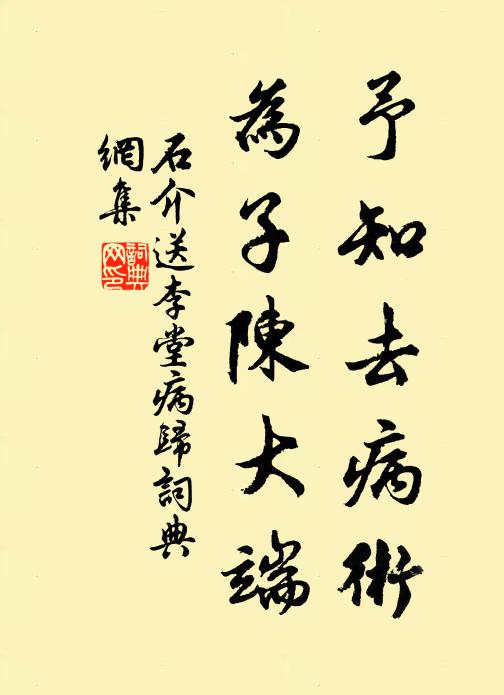 予知去病術
為子陳大端
石介送李堂病歸詞典
網集
詞典網印